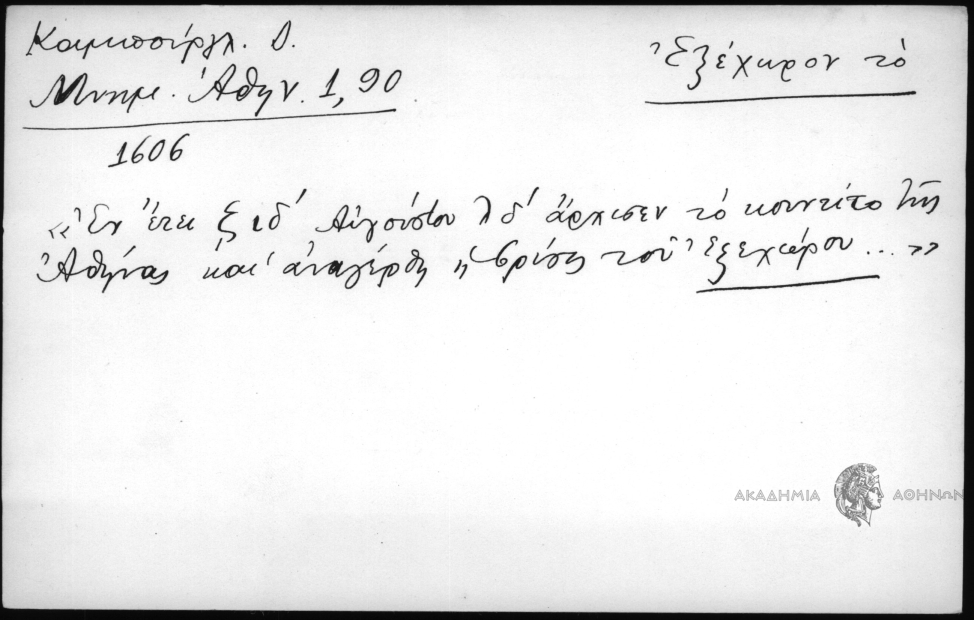 Καμπούργλ. Δ.
Μνημ. Ἀθην. 1,90
Ἐξέχωρον τὸ
1606
«Ἐν ἔτει ξιδ' Αὐγούστου λδ' ἄρχισεν τὸ κουντίτο τῆς
Ἀθήνας καὶ ἀναγέρθη ἡ βρύσις τοῦ Ἐξεχώρου ... »
ΑΚΑΔΗΜΙΑ ΑΘΗΝΩΝ